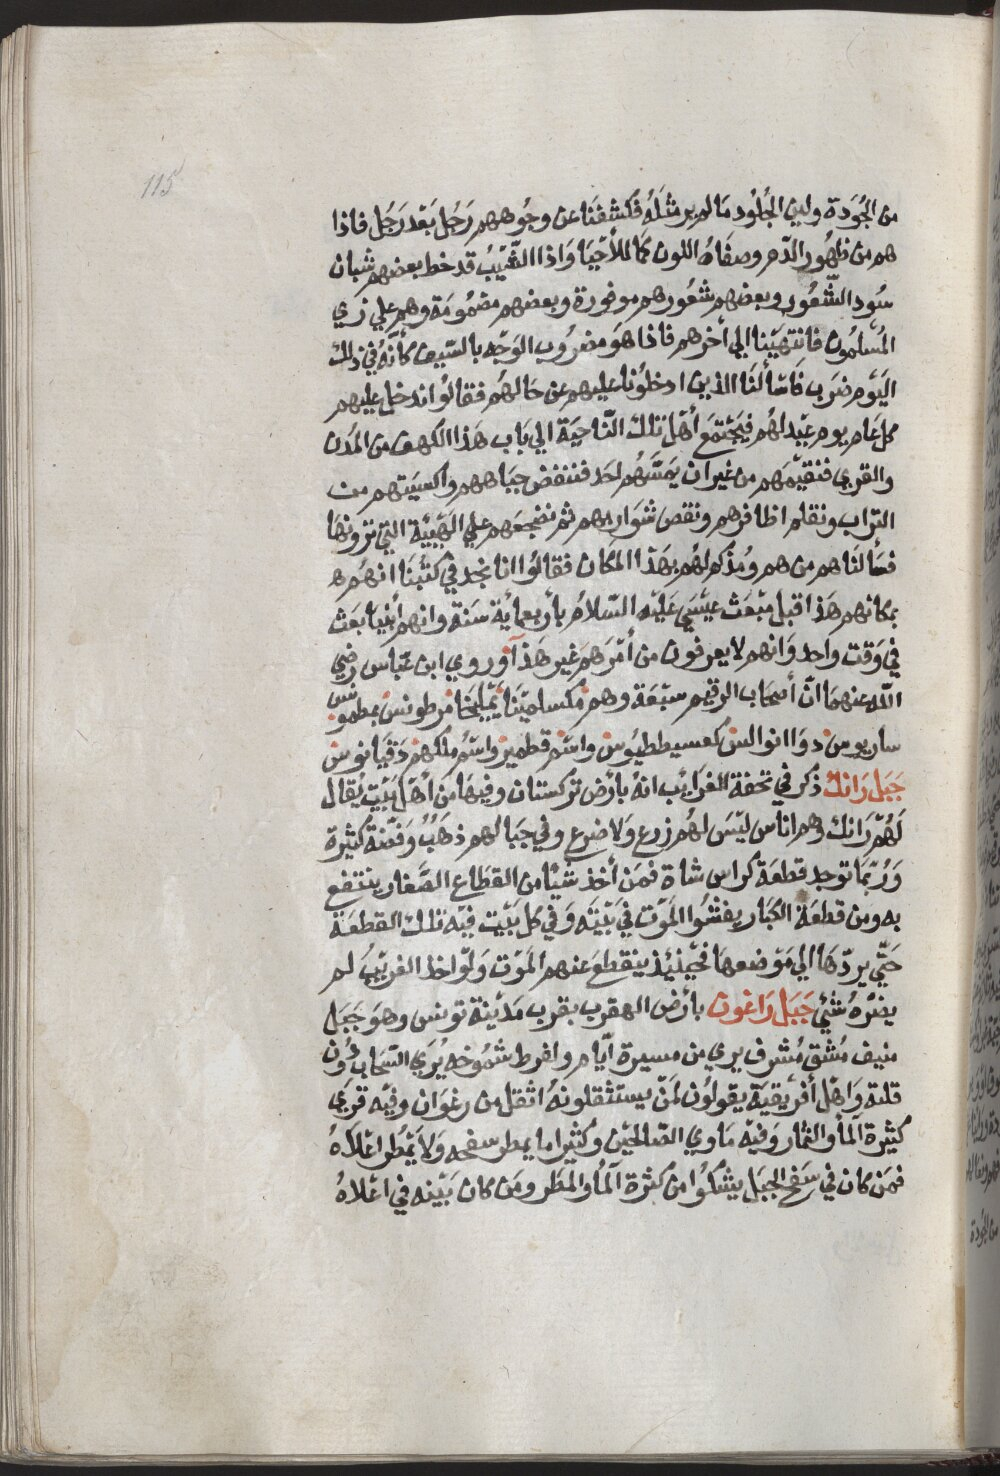 115
من الجُودَة ولين الجُلُود مَا لم ير مثلَهُ فكشفنَا عن وجُوههم رَجُل بَعْد رَجُل فاذا
هم من ظهُور الدّم وصفَاهُ اللون كَمَا للأحْيَا وَاذا الشَّيْبُ قد خط بعضهم شبان
سُود الشّعُور وبعضهم شعُورهم موفورة وبعضهم مضمُومَة وهم علي زي
المُسلمُون فانتهَيْنا الي أخرهم فاذا هوَ مضروب الوَجْه بالسّيف كأنَّهُ في ذلك
اليَوْم ضرَب فَاسْألنَا الذين ادخلُونا عليهم عن حَالهُم فقالُوا ندخل عليهم
كل عَام يوم عيْد لهُم فيَجْتمع أهْل تلك النّاحيَة الي بَاب هَذا الكهف من المدُن
والقري فنقيْمَهم من غير ان يمَسَّهُم احَد فننفض جبَاههم واكسيَتهم من
التراب ونقلم اظافرهم ونقص شوَاربهم ثم نضجعَهم علي الهَيْئَة التي ترونهَا
فسَألنَاهم من هم ومُذكم لهُم بهَذا المكان فقالُوا انا نجد في كتُبنَا انهُم
بمكانهم هَذا قبل مبْعَث عيْسَي عَليْه السّلام بأربعمايَة سَنة وانهم أنبيا بعَث
في وَقت واحد وَانهم لا يعرفون من أمْرَهم غير هَذا وروي ابن عبّاس رضي
الله عنهمَا انّ أصْحَاب الرقيم سبْعَة وهم مكسلميْنَا يَمْليخَا مرطونس بطمونس
ساربوس دوانوالس كعسيططيُوس واسْم قطمير واسْمُ ملكهم دَقيَانوس
جَبَل رَانك ذكر في تحفة الغرَايْب انهُ بأرْض تركستان وفيهَا من أهْل بَيْت يُقال
لَهُمْ رَانك وهم اناس ليْسَ لهُم زرع وَلا ضرع وفي جبَالهم ذهَبُ وَفضّة كثيْرة
وَرُبمَا توجد قطعَة كراس شاة فمَن أخذ شيْئا من القطَاع الصّغار ينتفع
به ومن قطعَة الكبَار يفشُوا الموْت في بَيْته وَفي كل بَيْت فيْه تلك القطعَة
حَتّي يردّهَا الي موْضعهَا فحيْنئذ ينقطع عنهم الموْت وَلوْ اخذ الغريْبُ لم
يضرّهُ شئي جَبَل رَاغون بأرْض المغرب بقرب مَديْنة تونس وهوَ جَبَل
منيف مُشْق مُشرف يري من مسيرة أيّام ولفرط شمُوخه يُرَي السّحَاب دُون
قلته وَاهْل أفريْقيَة يقولُون لمَنْ يستثقلونهُ اثقل من رغوَان وفيْه قرَي
كثيْرة المأ والثمَار وَفيْه مَاوي الصّالحيْن وكثيْرا ما يمطر سفحه وَلا يمْطر اعْلاهُ
فمَن كان في سَفح الجبَل يشكُوا من كثرة المأ والمطر ومَن كان بَيْنه في اعْلاهُ